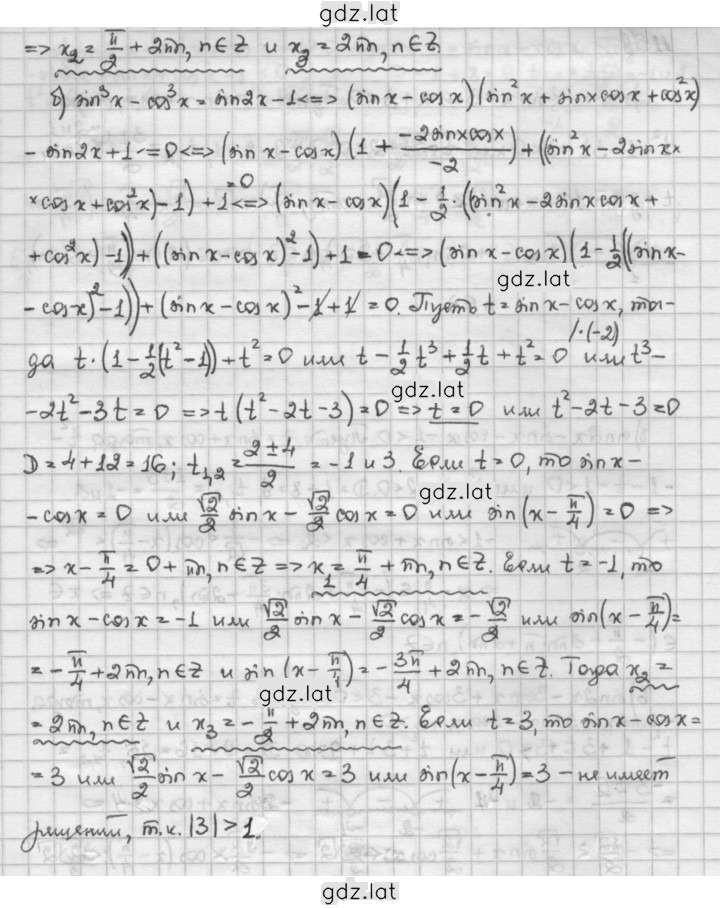 gdz.lat
=> x₂ = π/2 + 2πn, n∈Z и x₃ = 2πn, n∈Z.
б) sin³x - cos³x = sin2x - 1 <=> (sin x - cos x)(sin²x + sinxcosx + cos²x)
- sin2x + 1 <=> 0 <=> (sin x - cos x)(1 + (-2sinxcosx)/(-2)) + ((sin²x - 2sinx×
×cos x + cos²x) - 1) + 1 = 0 <=> (sin x - cos x)(1 - 1/2·((sin²x - 2sinxcosx +
+ cos²x) - 1)) + ((sin x - cos x)² - 1) + 1 = 0 <=> (sin x - cos x)(1 - 1/2((sinx-
gdz.lat
- cos x)² - 1)) + (sin x - cos x)² - 1 + 1 = 0. Пусть t = sin x - cos x, то-
да t·(1 - 1/2(t² - 1)) + t² = 0 или t - 1/2 t³ + 1/2 t + t² = 0 /·(-2) или t³ -
gdz.lat
- 2t² - 3t = 0 => t(t² - 2t - 3) = 0 => t = 0 или t² - 2t - 3 = 0
D = 4 + 12 = 16; t₁,₂ = (2 ± 4)/2 = -1 и 3. Если t = 0, то sin x -
gdz.lat
- cos x = 0 или √2/2 sin x - √2/2 cos x = 0 или sin(x - π/4) = 0 =>
=> x - π/4 = 0 + πn, n∈Z => x₁ = π/4 + πn, n∈Z. Если t = -1, то
sin x - cos x = -1 или √2/2 sin x - √2/2 cos x = -√2/2 или sin(x - π/4) =
= -π/4 + 2πn, n∈Z и sin(x - π/4) = -3π/4 + 2πn, n∈Z. Тогда x₂ =
gdz.lat
= 2πn, n∈Z и x₃ = -π/2 + 2πn, n∈Z. Если t = 3, то sin x - cos x =
= 3 или √2/2 sin x - √2/2 cos x = 3 или sin(x - π/4) = 3 - не имеет
решений, т.к. |3| > 1.
gdz.lat